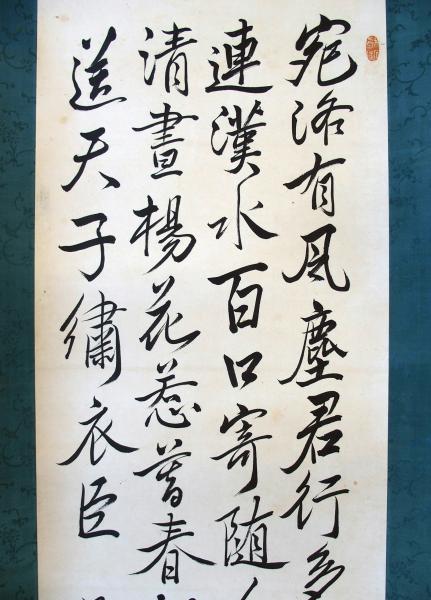 宛洛有風塵君行多
連漢水百口寄随
清晝楊花惹暮春
送天子繡衣臣